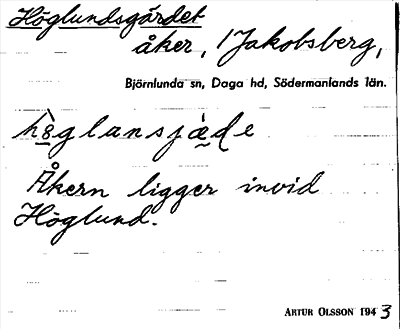 Höglundsgärdet
åker, /Jakobsberg,
Björnlunda sn, Daga hd, Södermanlands län.
hö̀glansjä̀de
Åkern ligger invid
Höglund.
ARTUR OLSSON 1943